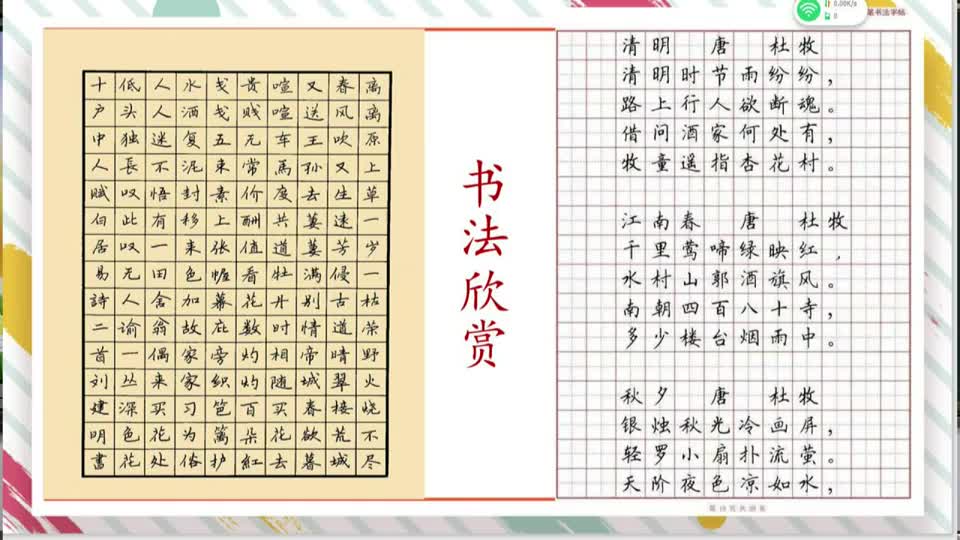 离离原上草一岁一枯荣野火烧不尽
春风吹又生远芳侵古道晴翠接荒城
又送王孙去萋萋满别情帝城春欲暮
喧喧车馬度共道牡丹时相随买花去
贵贱无常价酬值看花数灼灼百朵紅
戋戋五束素上张幄幕庇旁织笆篱护
水洒复泥封移来色加故家家习为俗
人人迷不悟有一田舍翁偶来买花处
低头独長叹此叹无人谕一丛深色花
十户中人赋白居易詩二首刘建明書
书法欣赏
笔书法字帖
0.00K/s
0
清明 唐 杜牧
清明时节雨纷纷，
路上行人欲断魂。
借问酒家何处有，
牧童遥指杏花村。
江南春 唐 杜牧
千里莺啼绿映红，
水村山郭酒旗风。
南朝四百八十寺，
多少楼台烟雨中。
秋夕 唐 杜牧
银烛秋光冷画屏，
轻罗小扇扑流萤。
天阶夜色凉如水，